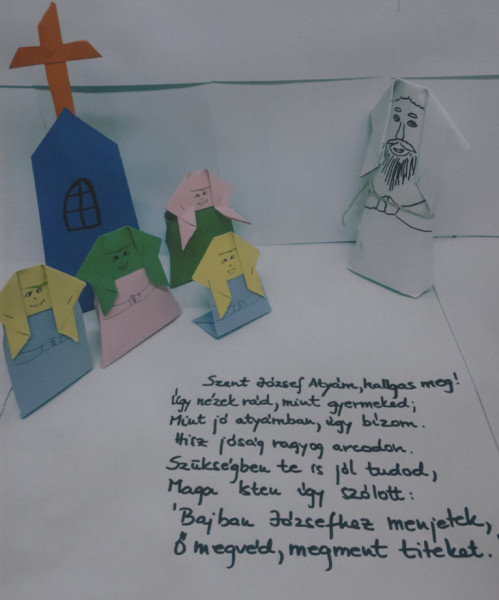 Szent József Atyám, hallgas meg!
Úgy nézek rád, mint gyermeked;
Mint jó atyámban, úgy bízom.
Hisz jóság ragyog arcodon.
Szükségben te is jól tudod,
Maga Isten úgy szólott:
'Bajban Józsefhez menjetek,
Ő megvéd, megment titeket.'